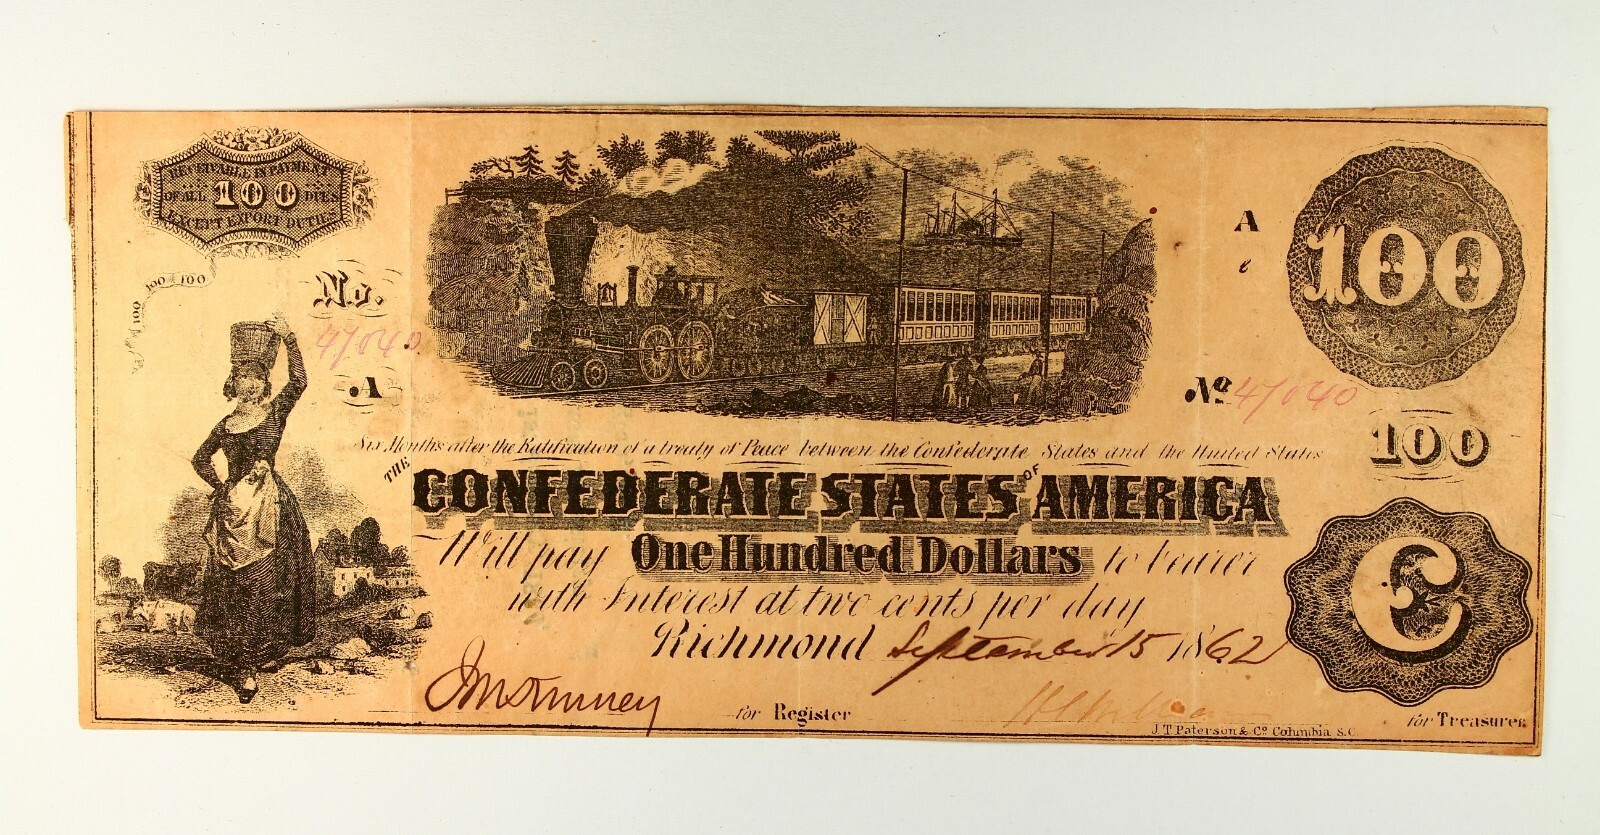 RECEIVABLE IN PAYMENT
OF ALL 100 DUES
EXCEPT EXPORT DUTIES
100 100 100
No.
47040
A
A
e
100
No 47040
100
C
Six Months after the Ratification of a treaty of Peace between the Confederate States and the United States
THE CONFEDERATE STATES OF AMERICA
Will pay One Hundred Dollars to bearer
with Interest at two cents per day
Richmond September 15 1862
for Register
for Treasurer
J.T. Paterson & Co Columbia S.C.